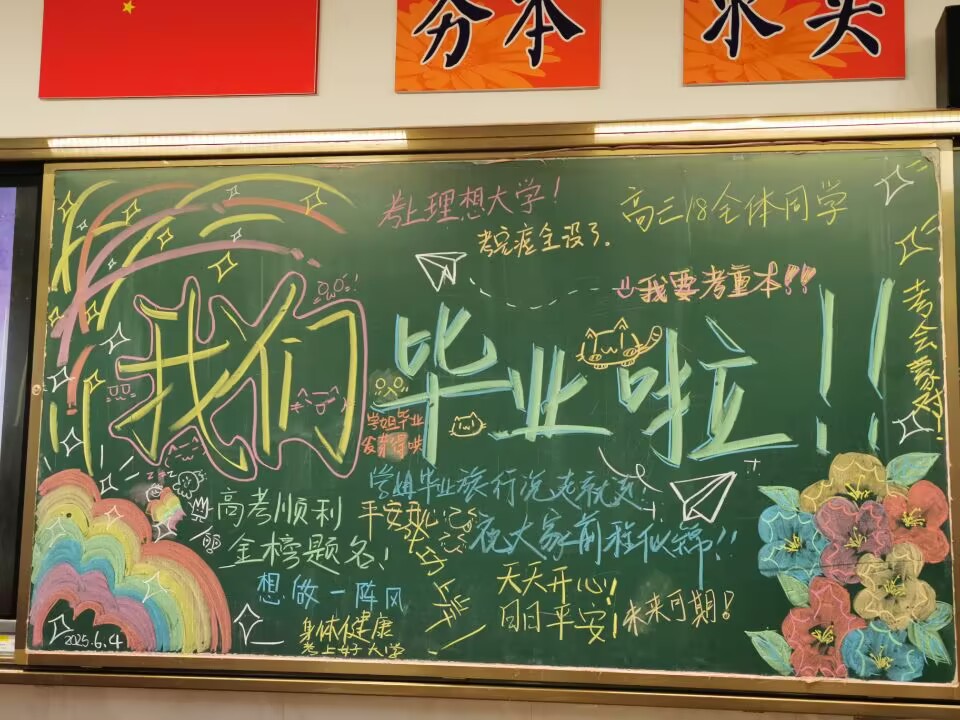 夯本
求实
考上理想大学！
高三18全体同学
考完涯全没了.
我要考重本!!
考会蒙对!
我们毕业啦!!
学姐毕业
学姐毕业旅行说走就走!
高考顺利
金榜题名!
祝大家前程似锦!!
想做一阵风
天天开心!
日日平安!
未来可期!
身体健康
考上好大学
2025.6.4